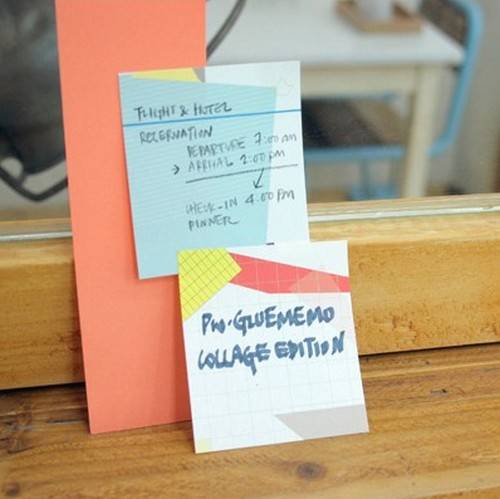 FLIGHT & HOTEL
RESERVATION
DEPARTURE 7:00 am
→ ARRIVAL 2:00 pm
CHECK-IN 4:00 pm
DINNER
Pw.GLUEMEMO
COLLAGE EDITION